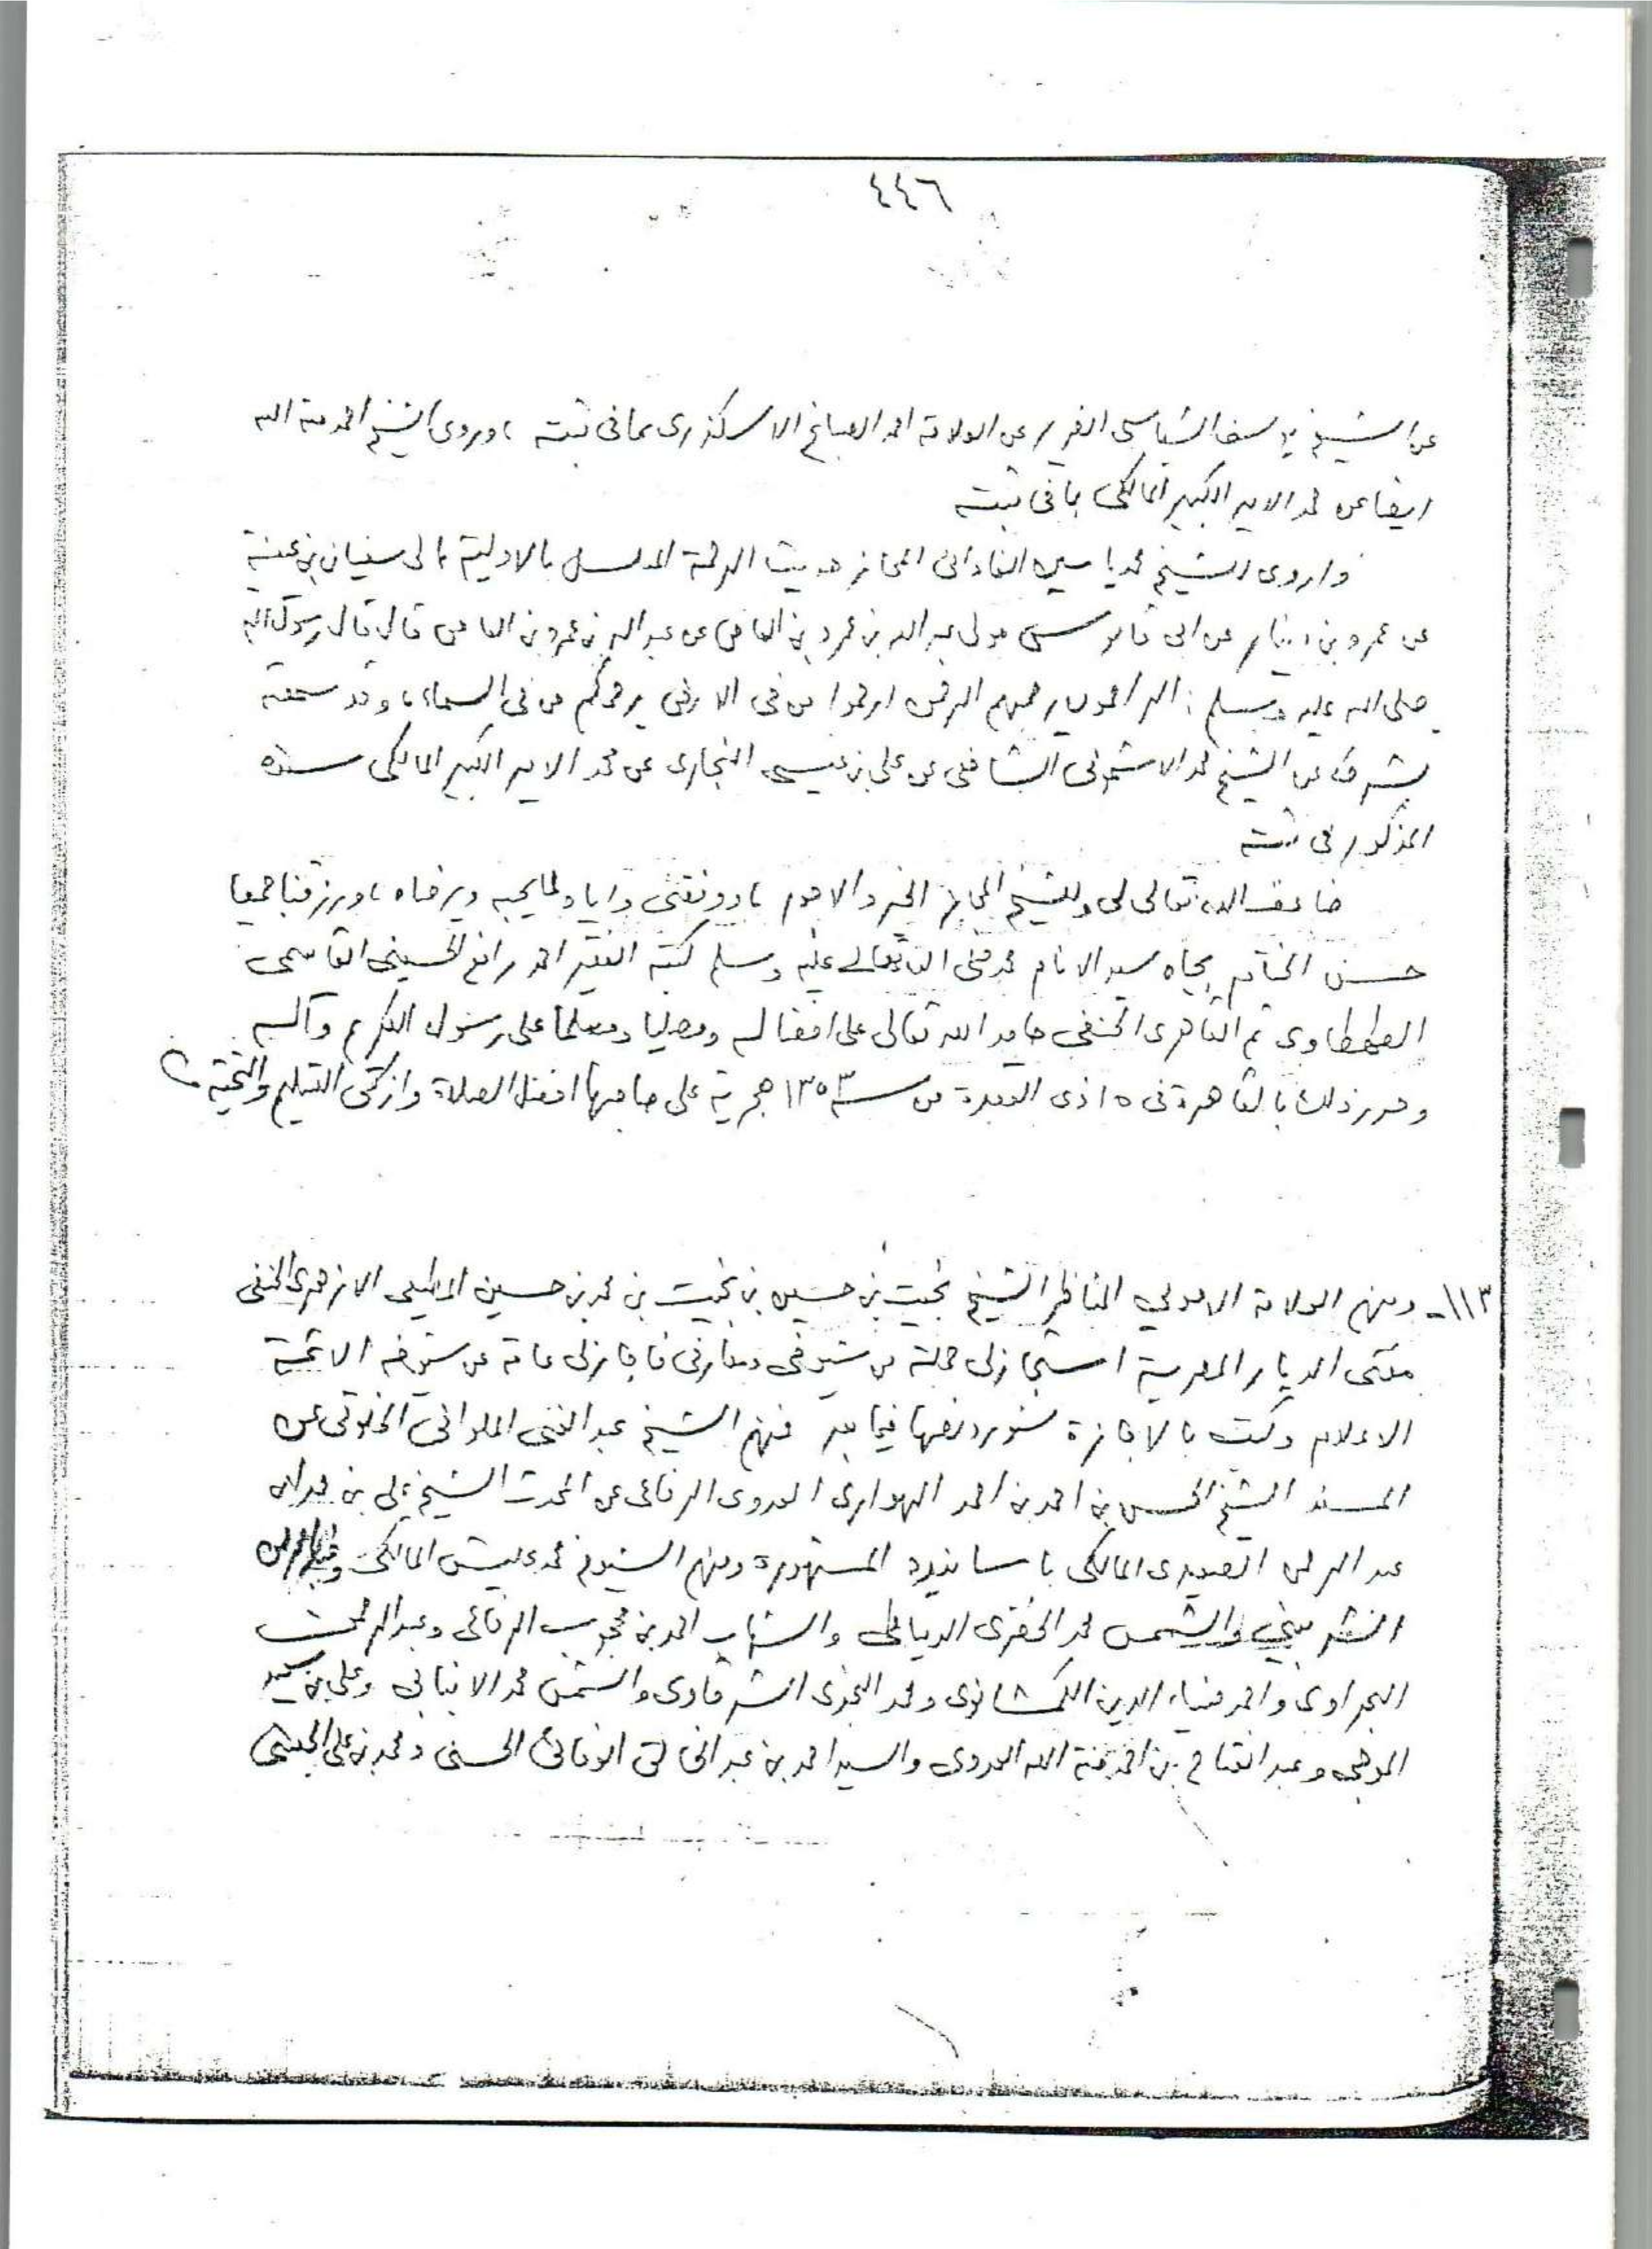 ٤٤٦
عن الشيخ يوسف الشباسى الضرير عن العلامة احمد الصباغ الاسكندرى بما فى ثبته ، وروى الشيخ احمد منة الله
ايضا عن محمد الامير الكبير المالكى بما فى ثبته
واروى الشيخ محمد ياسين الفادانى المجاز حديث الرحمة المسلسل بالاولية الى سفيان بن عيينة
عن عمرو بن دينار عن ابى قابوس مولى عبد الله بن عمرو بن العاص عن عبد الله بن عمرو بن العاص قال قال رسول الله
صلى الله عليه وسلم : الراحمون يرحمهم الرحمن ارحموا من فى الارض يرحمكم من فى السماء ، وقد سمعته
بشرطه عن الشيخ محمد الاشمونى الشافعى عن على بن عيسى النجارى عن محمد الامير الكبير المالكى بسنده
المذكور فى ثبته
ضاعف الله تعالى لى وللشيخ المجاز الخير والاجور ، ووفقنى واياه لما يحبه ويرضاه ، ورزقنا جميعا
حسن الختام بجاه سيد الانام محمد صلى الله تعالى عليه وسلم كتبه الفقير احمد رافع الحسينى القاسمى
الطهطاوى ثم القاهرى الحنفى حامدا لله تعالى على افضاله ومصليا ومسلما على رسوله الكريم وآله
وحرر ذلك بالقاهرة فى ١٥ ذى القعدة من سنة ١٣٥٣ هجرية على صاحبها افضل الصلاة وازكى التسليم والتحية
١١٣- ومنهم العلامة الاصولى المناظر الشيخ بخيت بن حسين بن بخيت بن محمد بن حسين المطيعى الازهرى الحنفى
مفتى الديار المصرية استجاز لى جملة من شيوخى ومعارفى فاجاز لى عامة عن شيوخه الائمة
الاعلام وكتب بالاجازة سنورد نصها فيما بعد فمنهم الشيخ عبد الغنى الملوانى الخلوتى عن
المسند الشيخ الحسن بن احمد بن احمد الهوارى العدوى الرفاعى عن المحدث الشيخ على بن محمد بن
عبد الرحمن الصعيدى المالكى باسانيده المشهورة ومنهم الشيوخ محمد عليش المالكى وعبد الرحمن
الشربينى والشمس محمد الخضرى الدمياطى والشهاب احمد بن محجوب الرفاعى وعبد الرحمن
البحراوى واحمد ضياء الدين الكمشخانوى ومحمد البحرى الشرقاوى والشمس محمد الانبابى وعلى بن سعيد
الموجى وعبد الفتاح بن احمد منة الله العدوى والسيد احمد بن عبد الخالق الوفائى الحسنى ومحمد بن على الحبشى